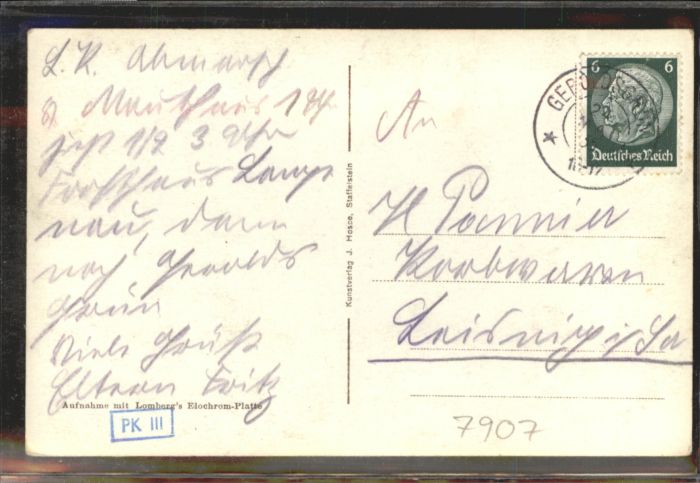 L. K. Abmarsch
v. Mauthaus 1 Uhr
jetzt 1/2 3 Uhr
Forsthaus Lange
nau, dann
nach Gerolds
Grün
Viele Grüße
Eltern Fritz
Aufnahme mit Lomberg's Elochrom-Platte
PK III
Kunstverlag J. Hospe, Staffelstein
6 6
Deutsches Reich
GEROLDSGRÜN
An
H Pannier
Korbwaren
Leisnig i/Sa
7907